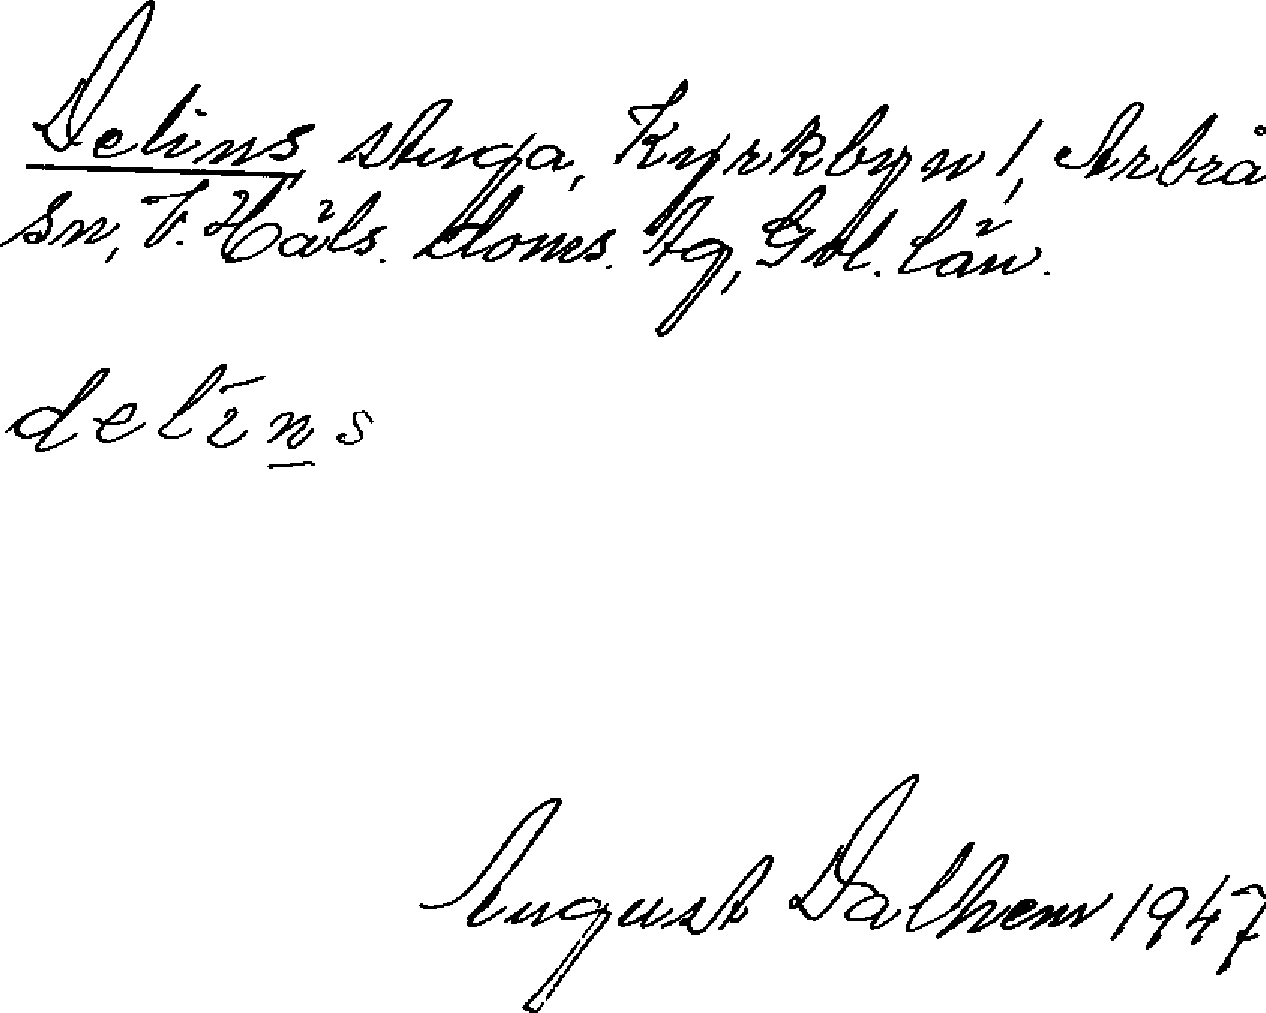 Delins stuga, Kyrkbyn 1, Arbrå
sn, V. Häls. doms. tg, Gvl. län.
delīn̲s
August Dalhem 1947